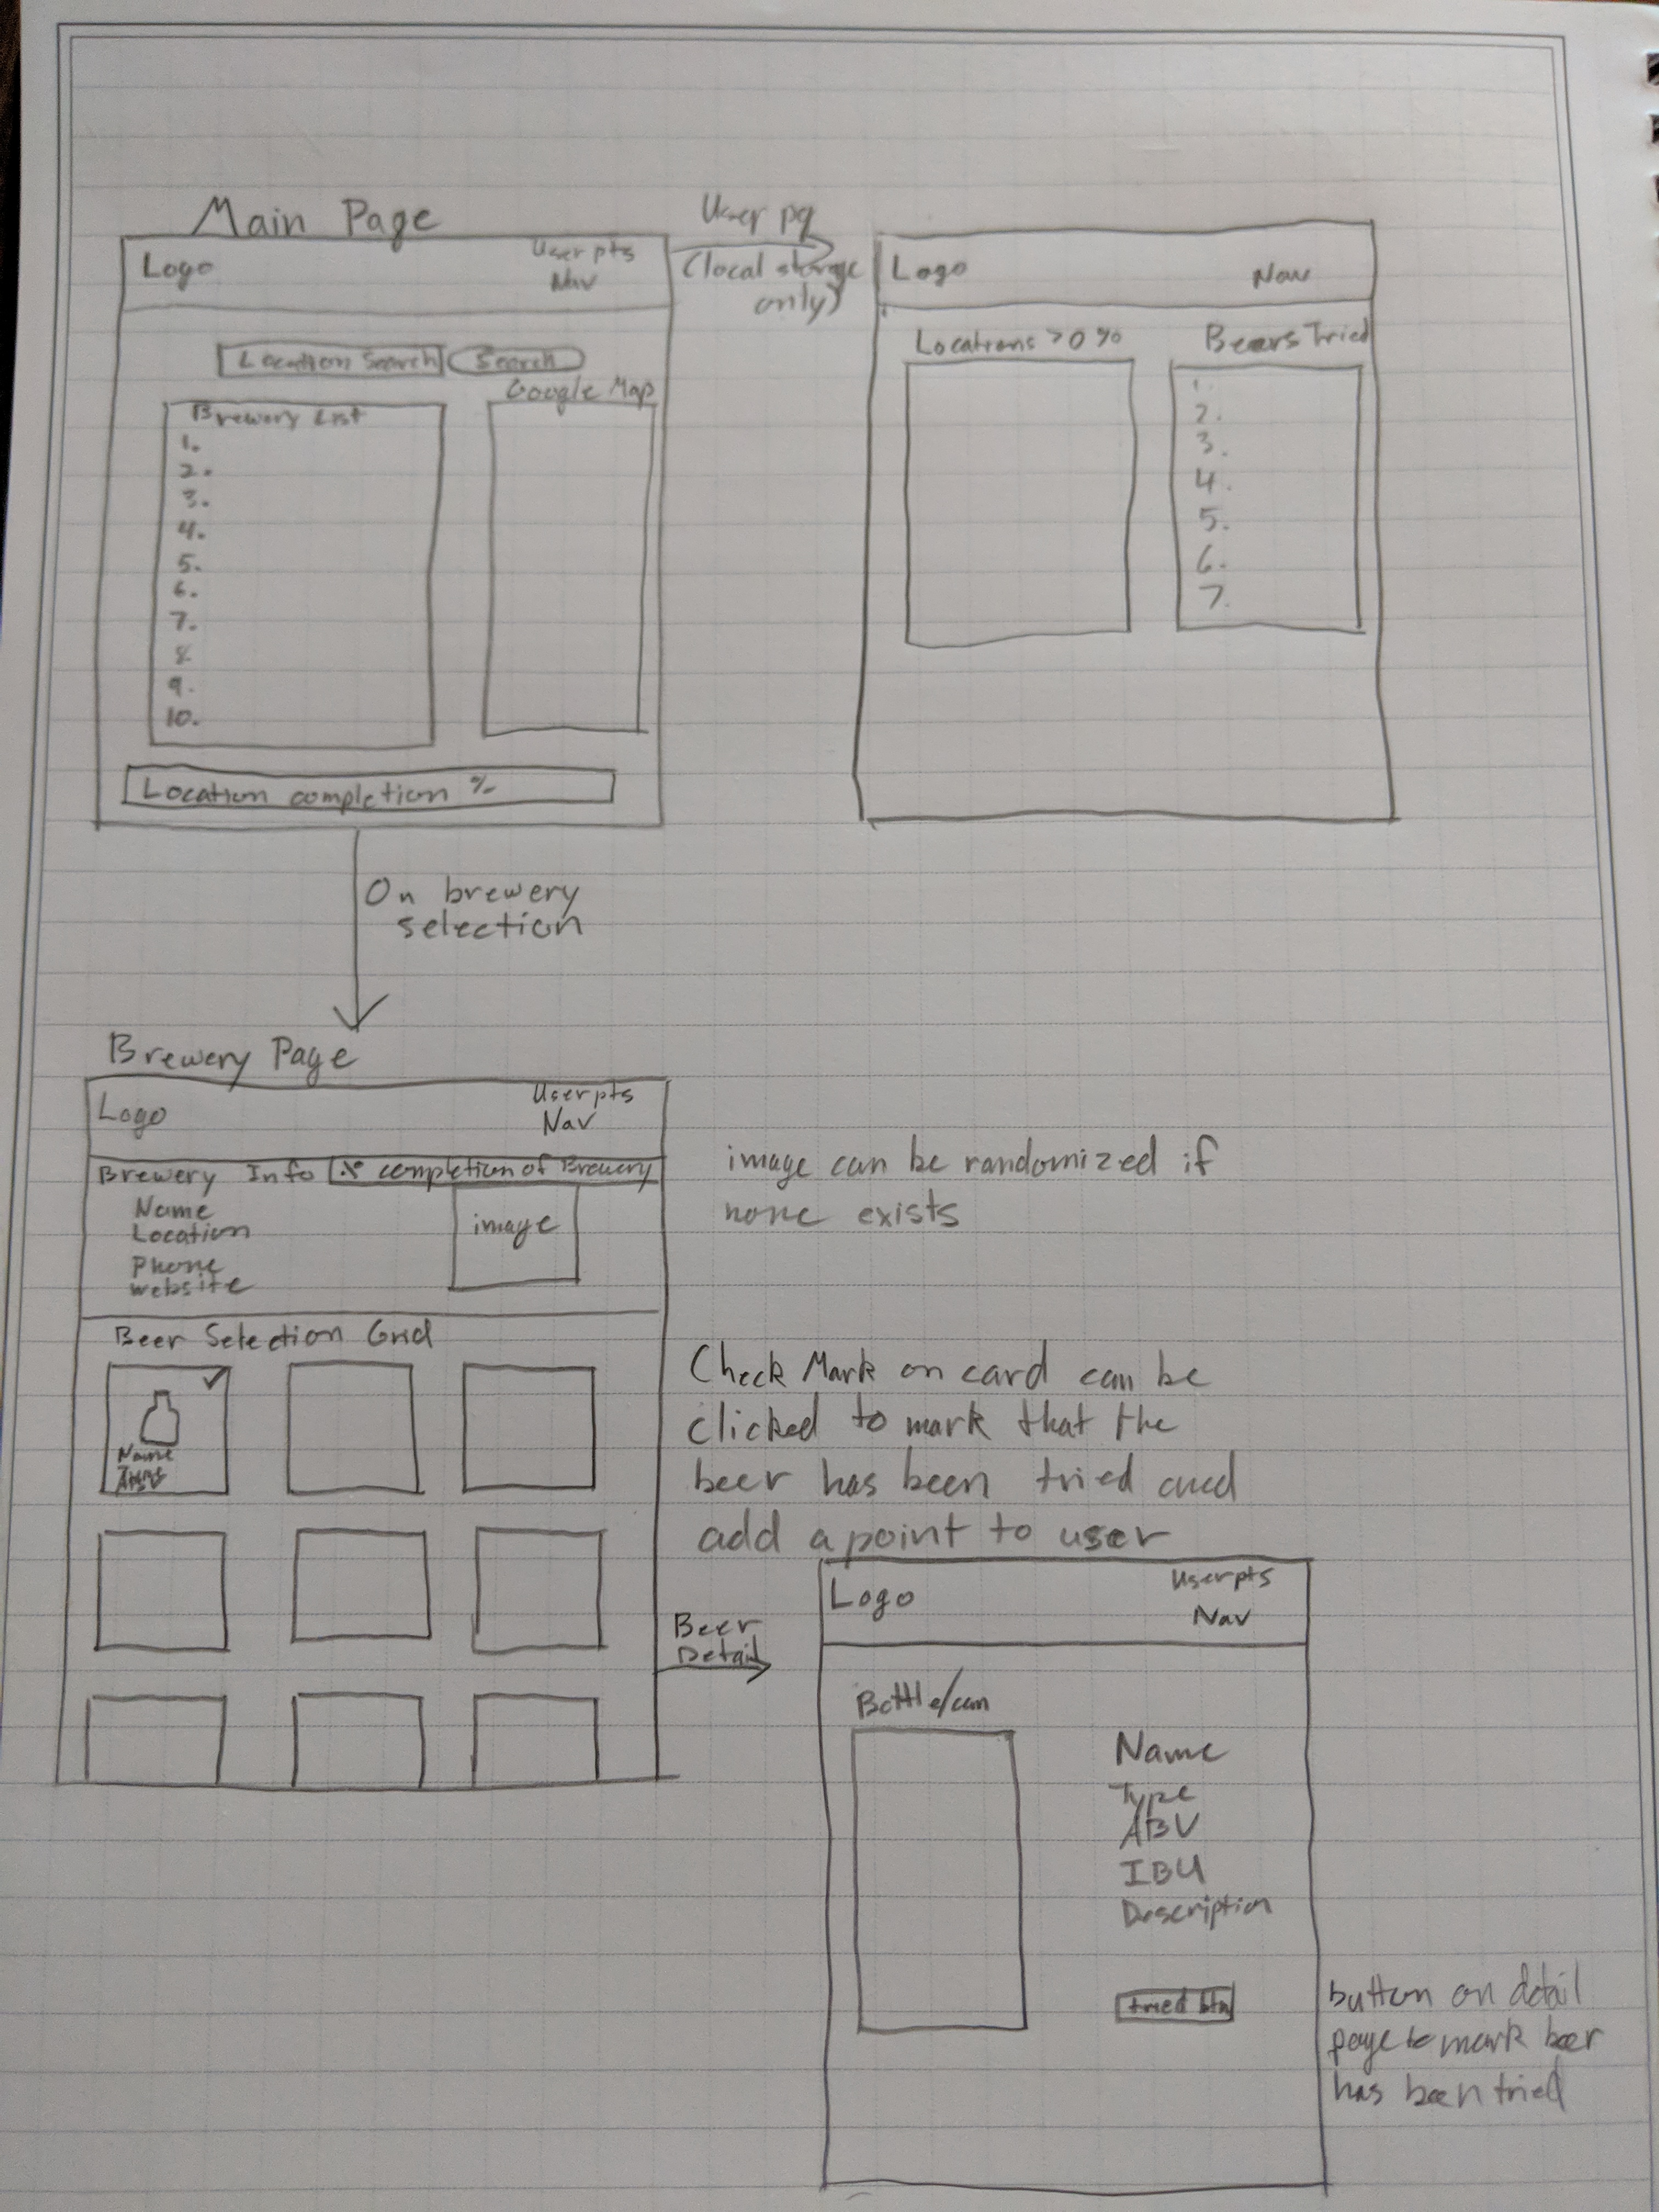 Main Page
Logo
User pts
Nav
Location Search
Search
Google Map
Brewery List
1.
2.
3.
4.
5.
6.
7.
8
9.
10.
Location completion %
User pg
(local storage
only)
Logo
Nav
Locations >0%
Beers Tried
1.
2.
3.
4.
5.
6.
7.
On brewery
selection
Brewery Page
Logo
User pts
Nav
Brewery Info
% completion of Brewery
Name
Location
Phone
website
image
image can be randomized if
none exists
Beer Selection Grid
Name
ABV
Check Mark on card can be
clicked to mark that the
beer has been tried and
add a point to user
Beer
Detail
Logo
User pts
Nav
Bottle/can
Name
Type
ABV
IBU
Description
tried btn
button on detail
page to mark beer
has been tried